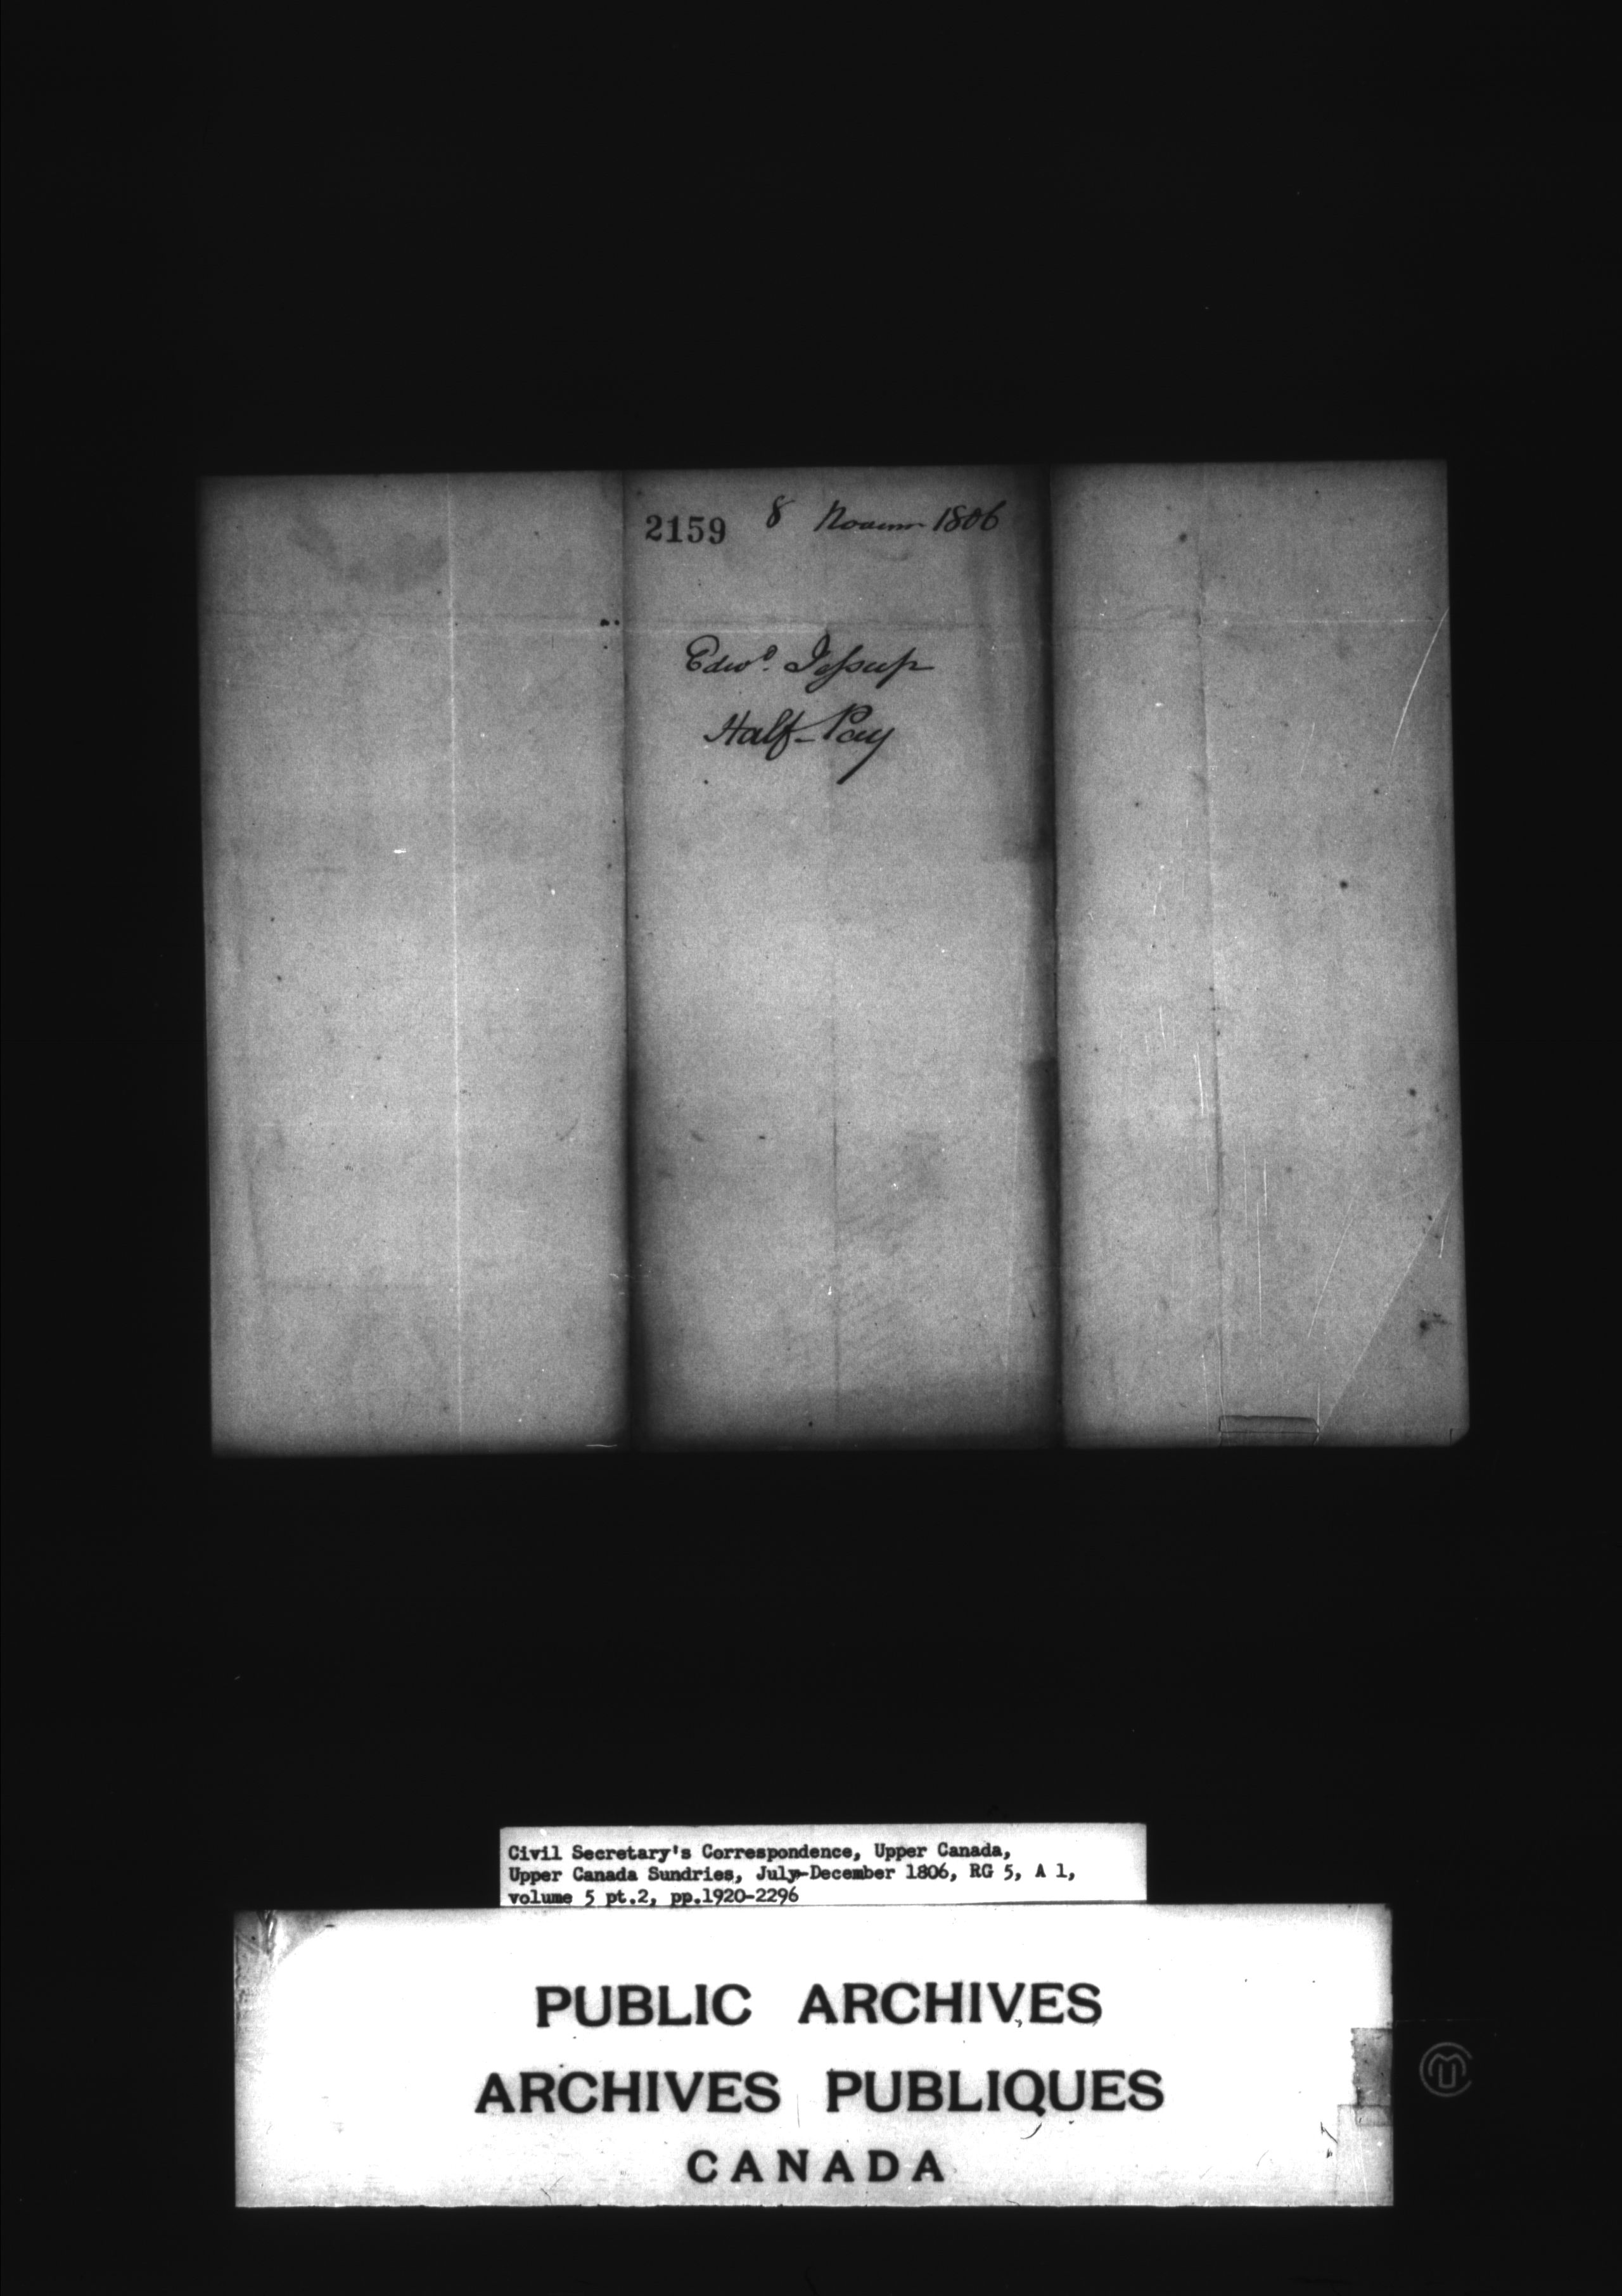 2159 8 Novemr 1806
Edwd. Jessup
Half-Pay
Civil Secretary's Correspondence, Upper Canada,
Upper Canada Sundries, July-December 1806, RG 5, A 1,
volume 5 pt.2, pp.1920-2296
PUBLIC ARCHIVES
ARCHIVES PUBLIQUES
CANADA